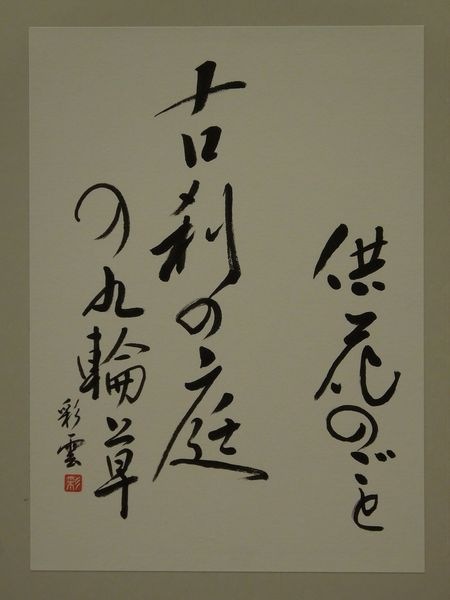 供花のごと
古刹の庭
の九輪草
彩雲
彩